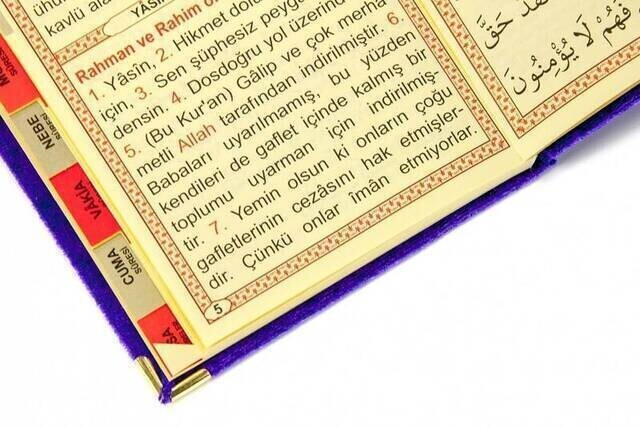 YÂSÎN
kavlü
Rahman ve Rahim
1. Yâsîn, 2. Hikmet
için, 3. Sen şüphesiz
densin. 4. Dosdoğru yol
5. (Bu Kur'an) Gâlip ve çok merha-
metli Allah tarafından indirilmiştir. 6.
Babaları uyarılmamış, bu yüzden
kendileri de gaflet içinde kalmış bir
toplumu uyarman için indirilmiş-
tir. 7. Yemin olsun ki onların çoğu
gafletlerinin cezâsını hak etmişler-
dir. Çünkü onlar îmân etmiyorlar.
5
SÛRESİ
NEBE
SÛRESİ
VÂKIA
CUMA
SÛRESİ
حَقَّ
فَهُمْ لَا يُؤْمِنُونَ